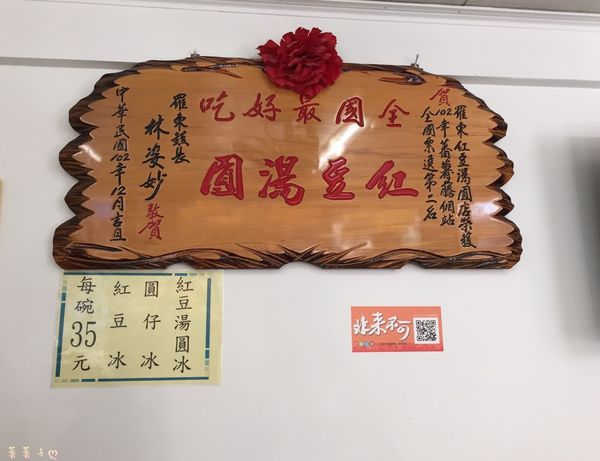 賀
羅東紅豆湯圓店榮獲
102年蕃薯藤網站
全國票選第二名
全國最好吃
紅豆湯圓
羅東鎮長
林姿妙 敬賀
中華民國102年12月吉旦
紅豆湯圓冰
圓仔冰
紅豆冰
每碗35元
非來不可